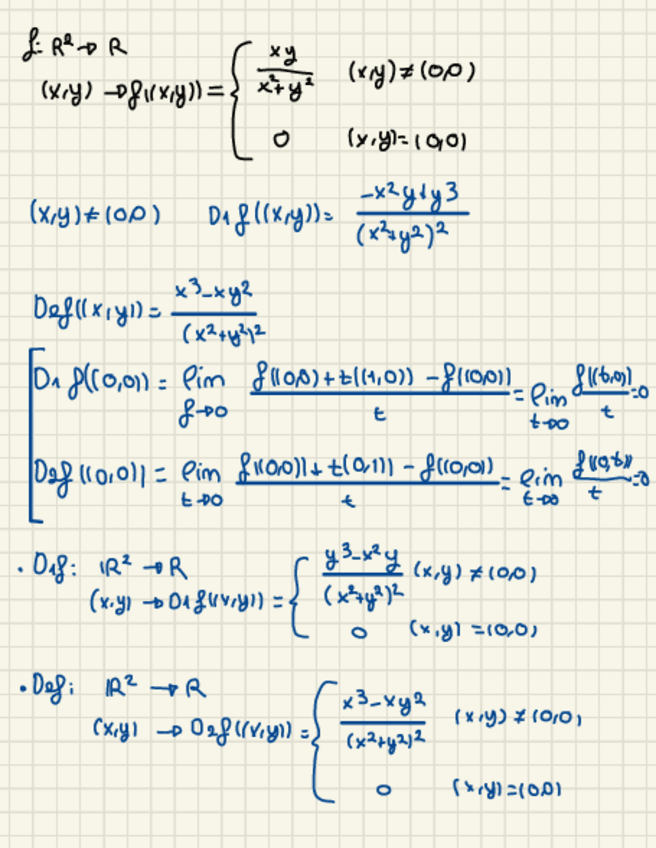 f: R² → R
(x,y) → f((x,y)) = { xy / x²+y² (x,y) ≠ (0,0)
0 (x,y) = (0,0)
(x,y) ≠ (0,0) D1 f((x,y)) = -x²y+y3 / (x²+y2)2
D2f((x,y)) = x3-xy2 / (x²+y²)2
D1 f((0,0)) = lim f→0 f((0,0)+t((1,0)) - f((0,0)) / t = lim t→0 f((t,0)) / t = 0
D2f((0,0)) = lim t→0 f((0,0))+t(0,1)) - f((0,0)) / t = lim t→0 f((0,t)) / t = 0
. D1f: R² → R
(x,y) → D1 f((x,y)) = { y3-x²y / (x²+y²)2 (x,y) ≠ (0,0)
0 (x,y) = (0,0)
• D2f: R² → R
(x,y) → D2f((x,y)) = { x3-xy2 / (x²+y2)2 (x,y) ≠ (0,0)
0 (x,y) = (0,0)